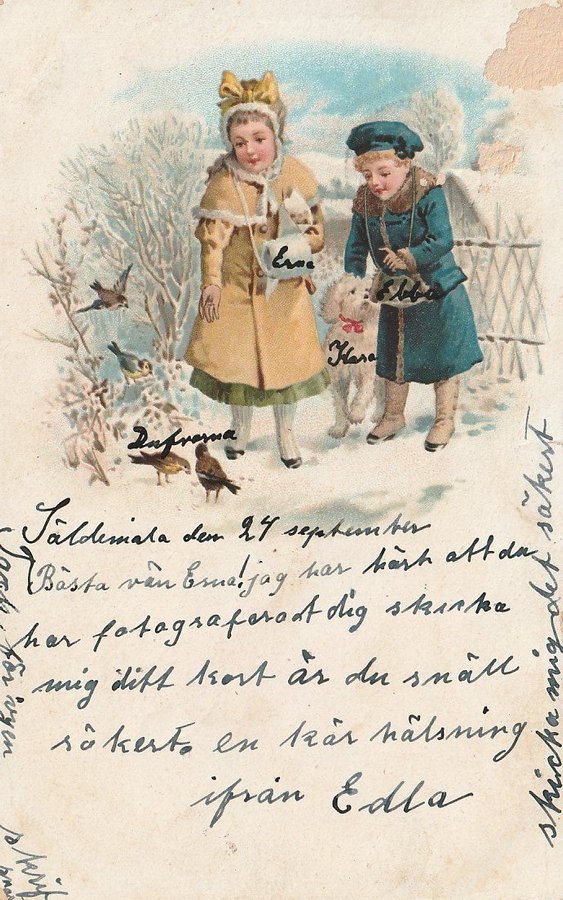 Erna
Ebba
Kara
Dufvorna
Säldemåla den 24 september
Bästa vän Erna! jag har hört att du
har fotograferadt dig skicka
mig ditt kort är du snäll
säkert. en kär hälsning
ifrån Edla
skicka mig det säkert
skrif